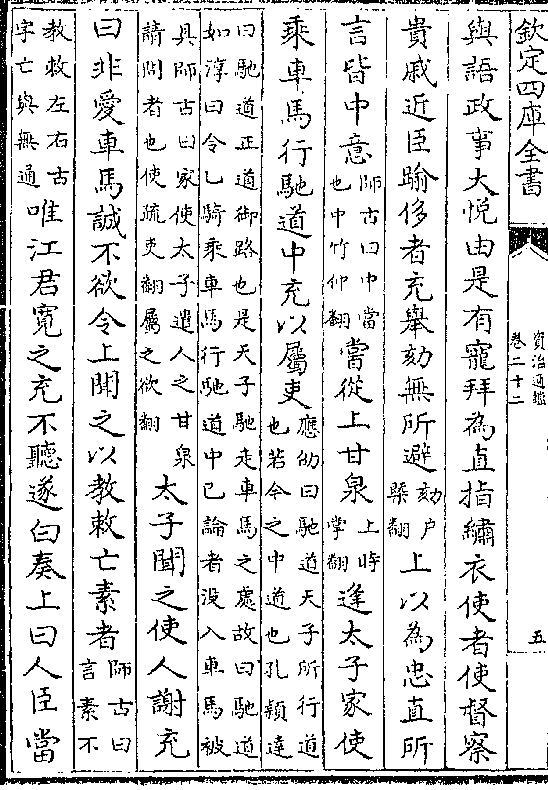 欽定四庫全書
資治通鑑
卷二十二
五
與語政事大悦由是有寵拜為直指繡衣使者使督察
貴戚近臣踰侈者充舉劾無所避劾户槩翻上以為忠直所
言皆中意師古曰中當也中竹仲翻嘗從上甘泉上時掌翻逢太子家使
乘車馬行馳道中充以屬吏應劭曰馳道天子所行道也若今之中道也孔頴達
曰馳道正道御路也是天子馳走車馬之處故曰馳道如淳曰令乙騎乘車馬行馳道中已論者没入車馬被
具師古曰家使太子遣人之甘泉請問者也使疏吏翻屬之欲翻太子聞之使人謝充
曰非愛車馬誠不欲令上聞之以教敕亡素者師古曰言素不
教敕左右古字亡與無通唯江君寛之充不聽遂白奏上曰人臣當